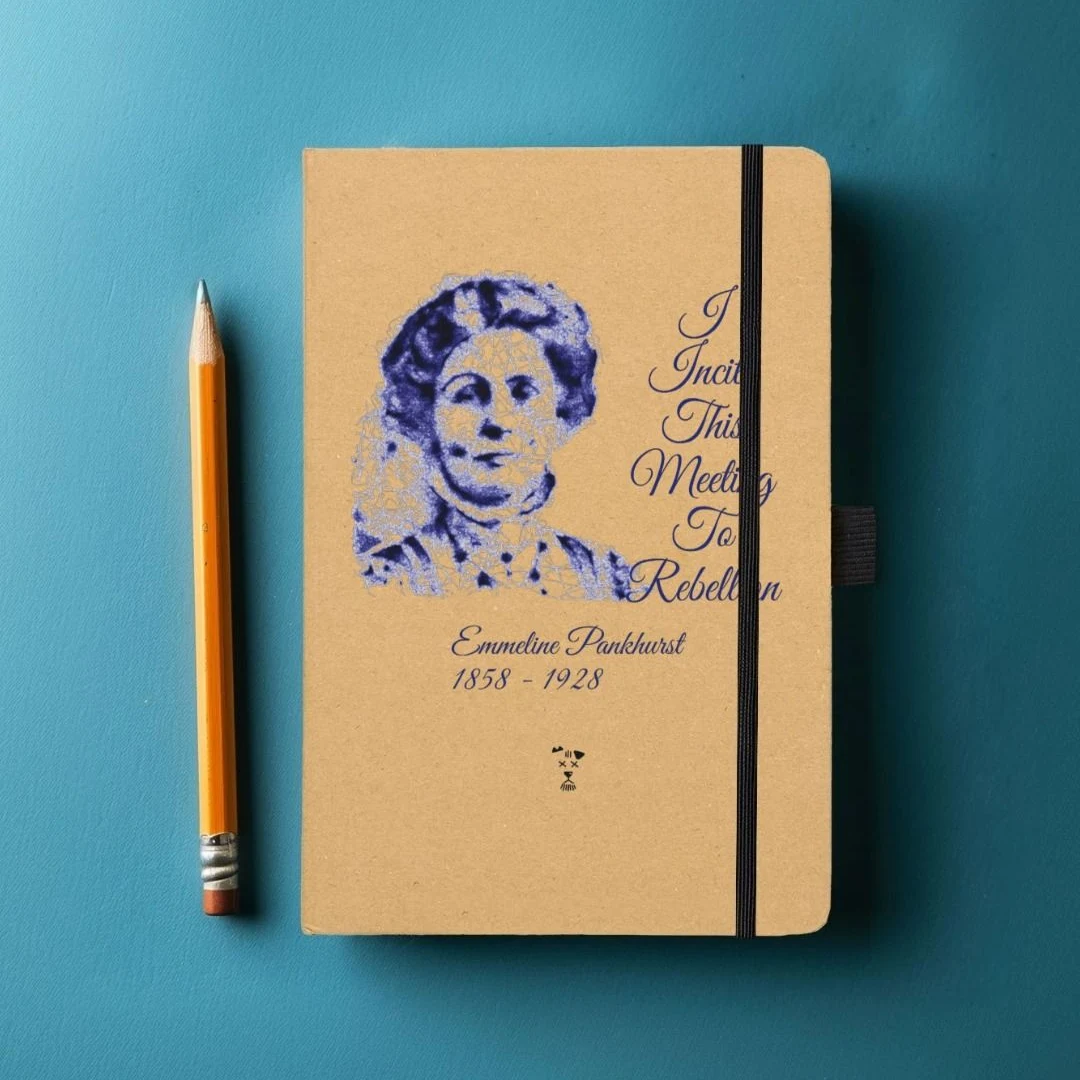 I
Incite
This
Meeting
To
Rebellion
Emmeline Pankhurst
1858 - 1928